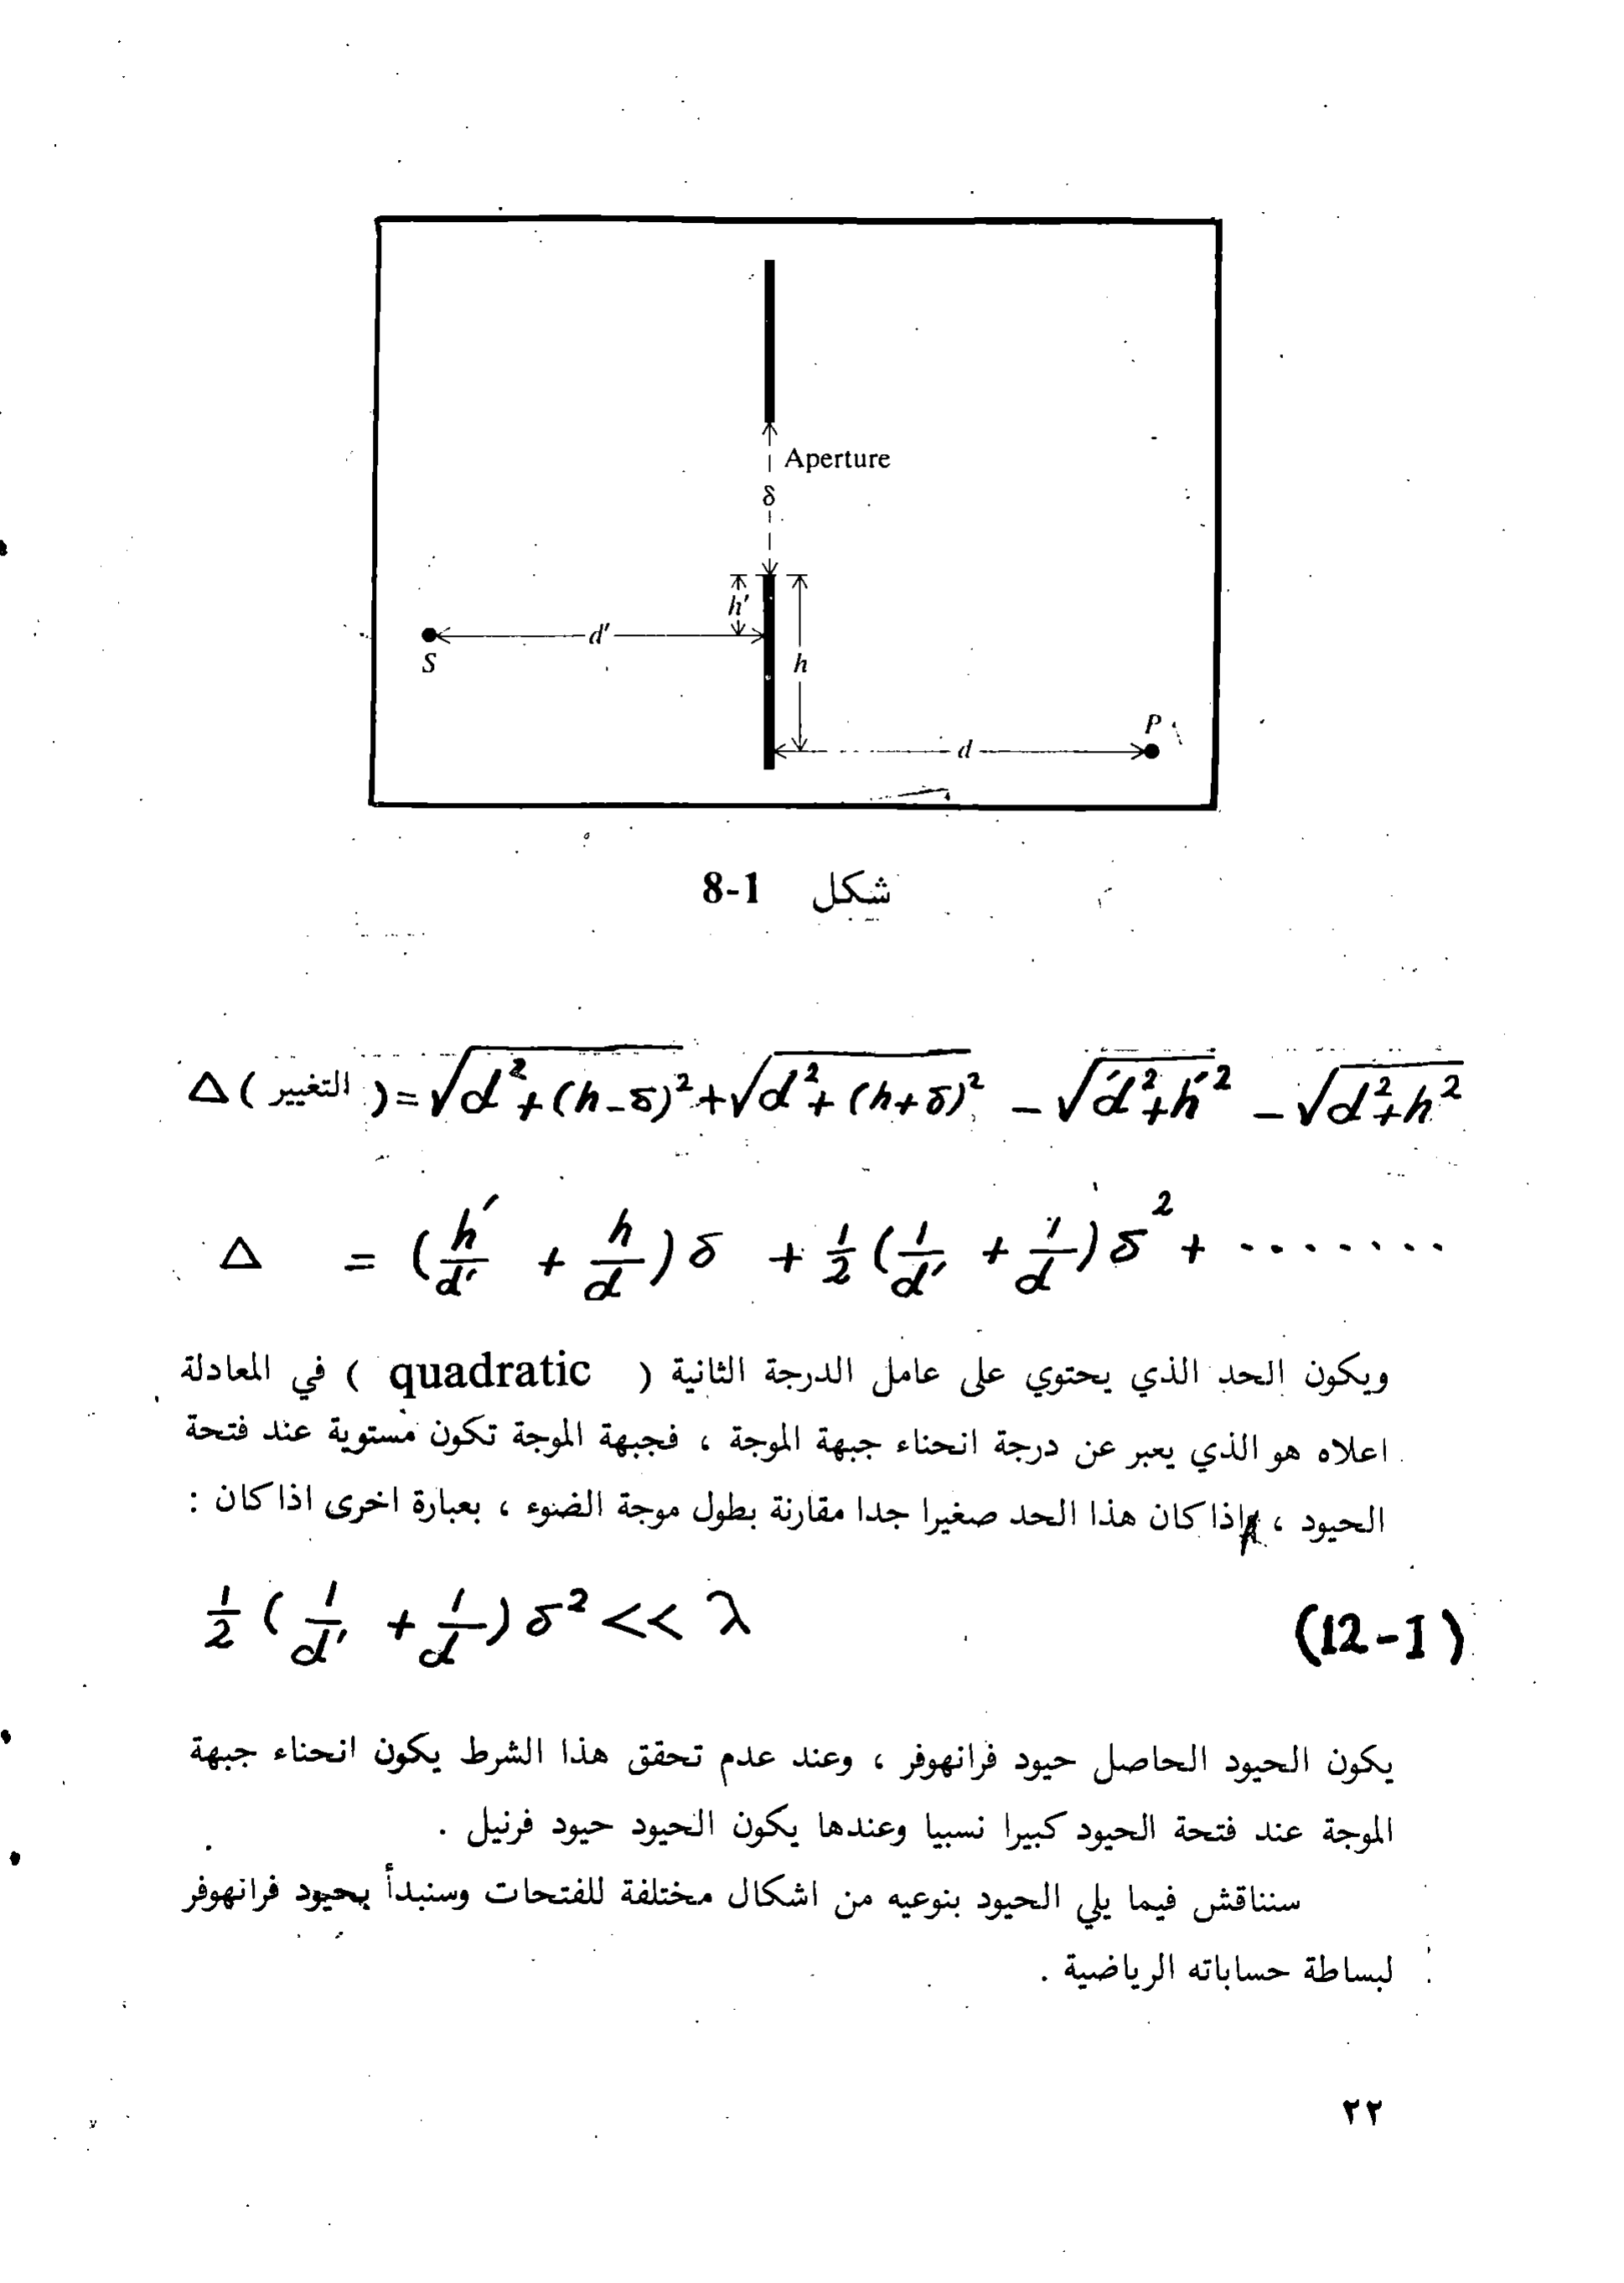 Aperture
δ
h'
d'
S
h
P
d
شكل 8-1
Δ ( التغيير ) = √(d² + (h - δ)²) + √(d² + (h + δ)²) - √(d'² + h'²) - √(d² + h²)
Δ = (h'/d' + h/d) δ + 1/2 (1/d' + 1/d) δ² + ........
ويكون الحد الذي يحتوي على عامل الدرجة الثانية ( quadratic ) في المعادلة
اعلاه هو الذي يعبر عن درجة انحناء جبهة الموجة ، فجبهة الموجة تكون مستوية عند فتحة
الحيود ، اذا كان هذا الحد صغيرا جدا مقارنة بطول موجة الضوء ، بعبارة اخرى اذا كان :
1/2 (1/d' + 1/d) δ² << λ (12-1)
يكون الحيود الحاصل حيود فرانهوفر ، وعند عدم تحقق هذا الشرط يكون انحناء جبهة
الموجة عند فتحة الحيود كبيرا نسبيا وعندها يكون الحيود حيود فرنيل .
سنناقش فيما يلي الحيود بنوعيه من اشكال مختلفة للفتحات وسنبدأ بحيود فرانهوفر
لبساطة حساباته الرياضية .
٢٢